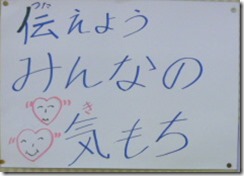 伝えよう
みんなの
気もち